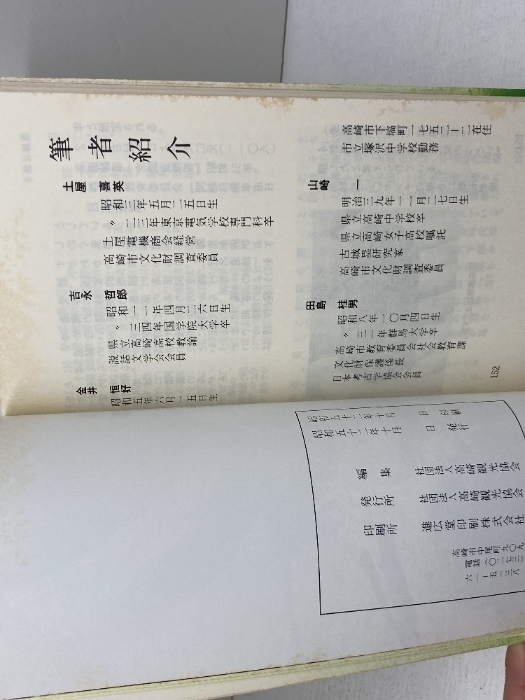 筆者紹介
土屋 喜英
昭和三年五月二五日生
〃 二三年東京電気学校専門科卒
土屋電機商会経営
高崎市文化財調査委員
吉永 哲郎
昭和一一年四月二六日生
〃 三四年国学院大学卒
県立高崎高校教諭
説話文学会会員
金井 恒好
昭和五年六月一五日生
高崎市下塙町一七五三ー二在住
市立塚沢中学校勤務
山崎 一
明治三九年一一月一七日生
県立高崎中学校卒
県立高崎女子高校嘱託
古城塁研究家
高崎市文化財調査委員
田島 桂男
昭和八年一〇月四日生
〃 三一年群馬大学卒
高崎市教育委員会社会教育課
文化財保護係長
日本考古学協会会員
152
昭和五十 年十月 日 発行
編集 社団法人高崎観光協会
発行所 社団法人高崎観光協会
印刷所 進広堂印刷株式会社
高崎市中尾町九〇九
電話(〇二七三)
六一ー五一三八